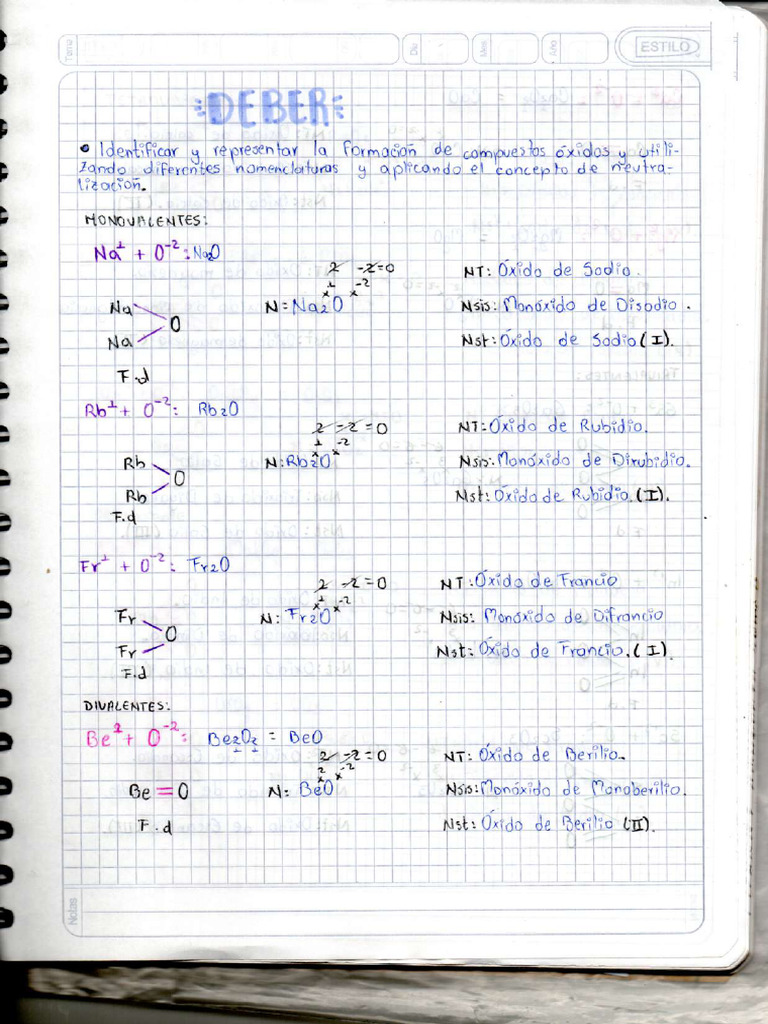 Tema
Día
Mes
Año
ESTILO
DEBER
• Identificar y representar la formación de compuestos óxidos y utili-
zando diferentes nomenclaturas y aplicando el concepto de neutra-
lización.
MONOVALENTES:
Na⁺¹ + O⁻²: Na₂O
2 -2=0
Na
Na
O
+1 -2
N: Na₂O
NT: Óxido de Sodio.
Nsis: Monóxido de Disodio.
Nst: Óxido de Sodio (I).
F.d
Rb⁺¹ + O⁻²: Rb₂O
2 -2=0
Rb
Rb
O
+1 -2
N: Rb₂O
NT: Óxido de Rubidio.
Nsis: Monóxido de Dirubidio.
Nst: Óxido de Rubidio (I).
F.d
Fr⁺¹ + O⁻²: Fr₂O
2 -2=0
Fr
Fr
O
+1 -2
N: Fr₂O
NT: Óxido de Francio
Nsis: Monóxido de Difrancio
Nst: Óxido de Francio. (I).
F.d
DIVALENTES:
Be² + O⁻²: Be₂O₂ = BeO
2 -2=0
Be = O
2 -2
N: BeO
NT: Óxido de Berilio.
Nsis: Monóxido de Monoberilio.
Nst: Óxido de Berilio (II).
F.d
Notas